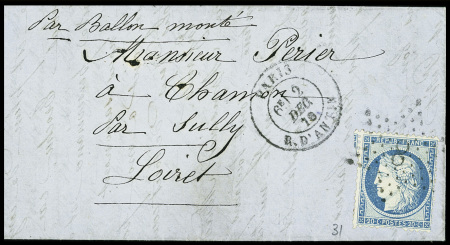 Par Ballon monté
Monsieur Perier
à Chamon
Par Sully
Loiret
PARIS
DEC.
70
R. D'ANTIN
REPUB. FRANC.
20 C. POSTES 20 C.
31